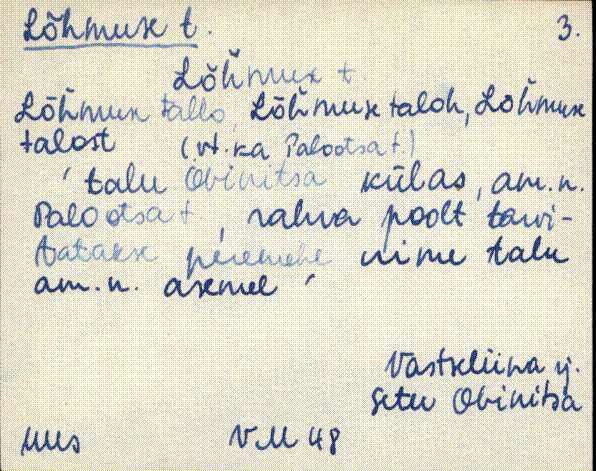 Lõhmuse t.
3.
Lõhmuse t.
Lõhmuse tallo, Lõhmuse taloh, Lõhmuse
talost (vt. ka Palootsa t.)
' talu Obinitsa külas, am. n.
Palootsa t., rahva poolt tarvi-
tatakse peremehe nime talu
am. n. asemel '
Vastseliina ỹ.
Setu Obinitsa
VM 48